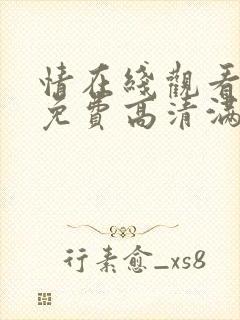 情在綫觀看
免費高清滿
行素愈_xs8